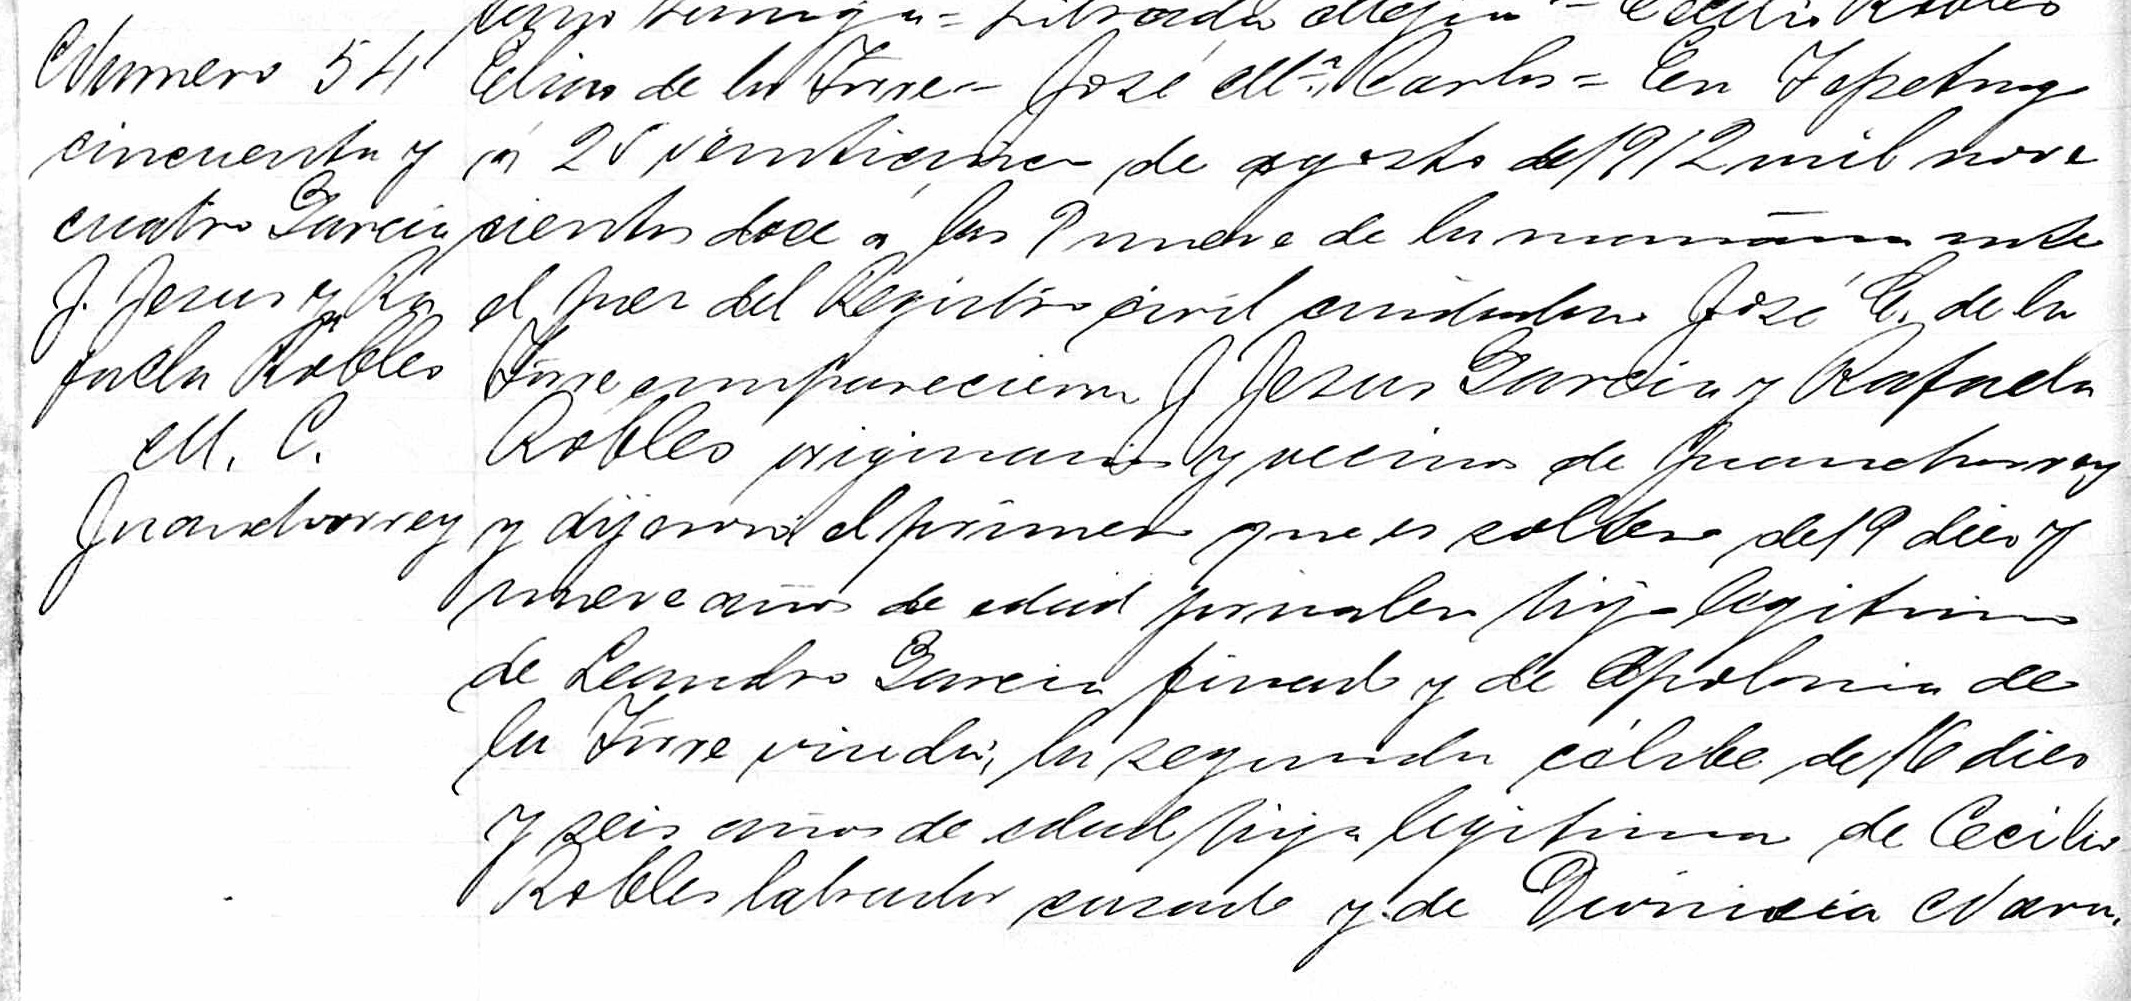 Numero 54
cincuenta y
cuatro Garcia
J. Jesus y Ra
faela Robles
M. C.
Juanchorrey
Librada Mejia = Cecilio Robles
de la Torre = José Ma. Carlos = En Tepetong
á 25 veinticinco de agosto de 1912 mil nove
cientos doce a las 9 nueve de la mañana ante
el juez del Registro civil ciudadano José E. de la
Torre comparecieron J Jesus Garcia y Rafaela
Robles originarios y vecinos de Juanchorrey
y dijeron el primero que es soltero de 19 dies y
nueve años de edad jornalero hijo legitimo
de Leandro Garcia finado y de Apolonia de
la Torre viuda; la segunda célibe de 16 dies
y seis años de edad hija legitima de Cecilio
Robles labrador casado y de Dionicia Nava.